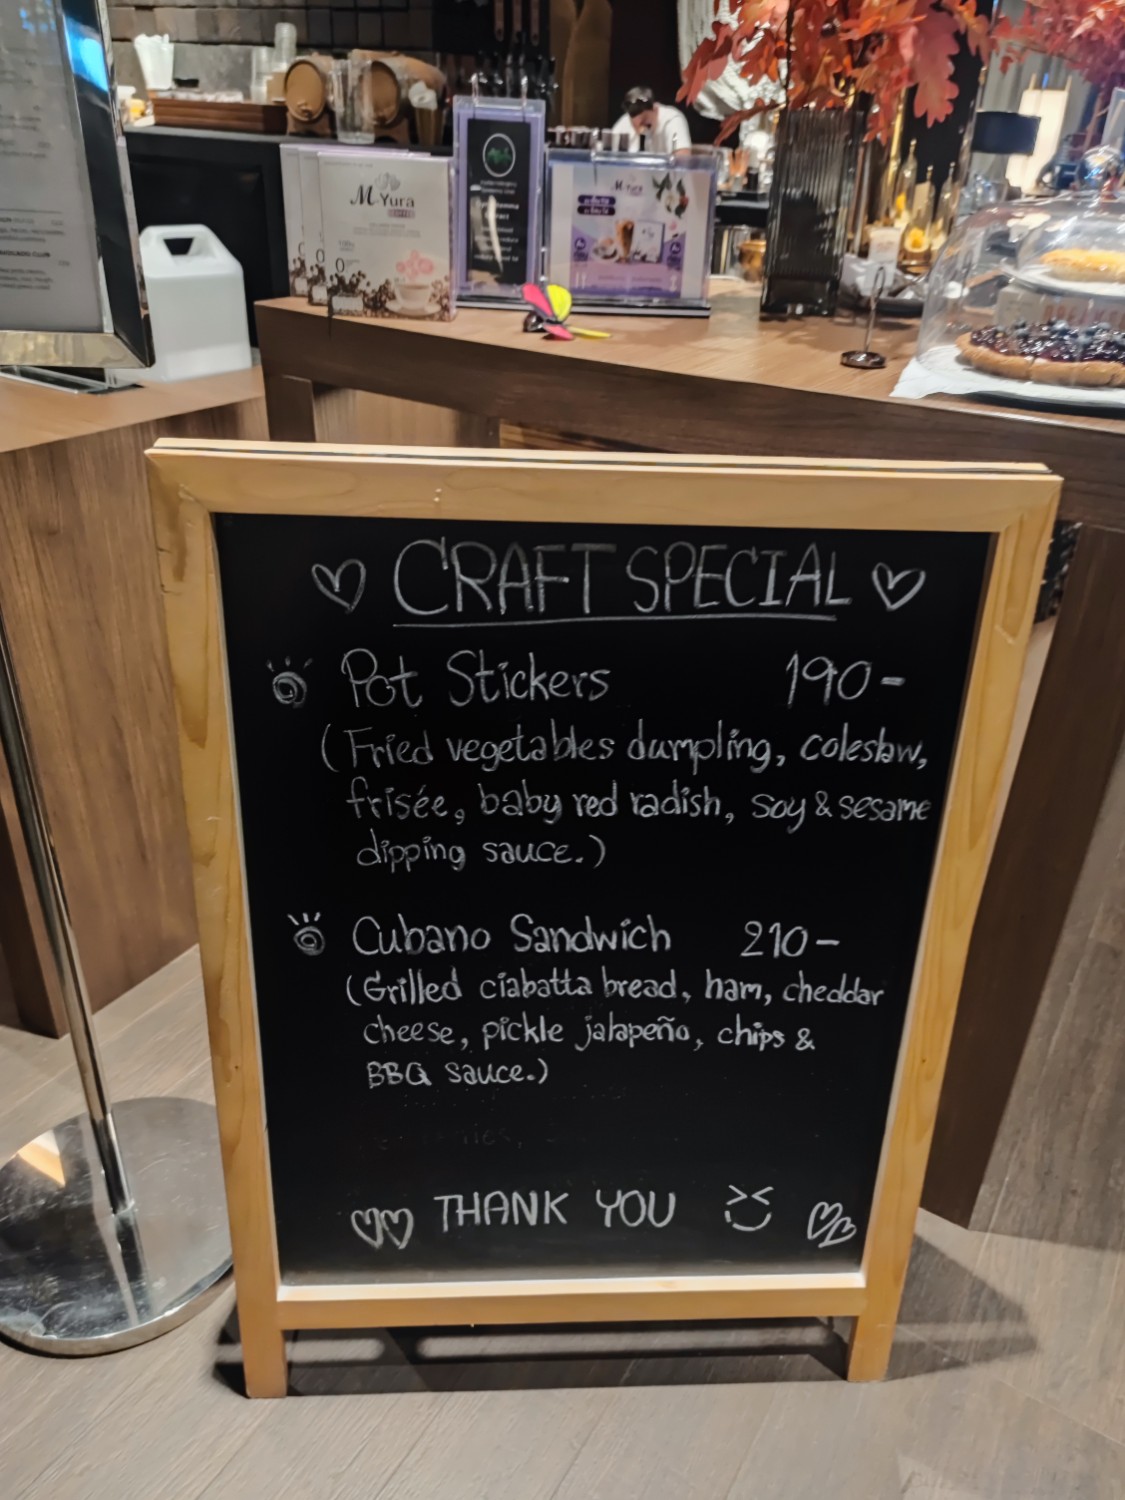 M Yura
COFFEE
M Yura
♡ CRAFT SPECIAL ♡
Pot Stickers 190-
(Fried vegetables dumpling, coleslaw,
frisée, baby red radish, soy & sesame
dipping sauce.)
Cubano Sandwich 210-
(Grilled ciabatta bread, ham, cheddar
cheese, pickle jalapeño, chips &
BBQ sauce.)
THANK YOU